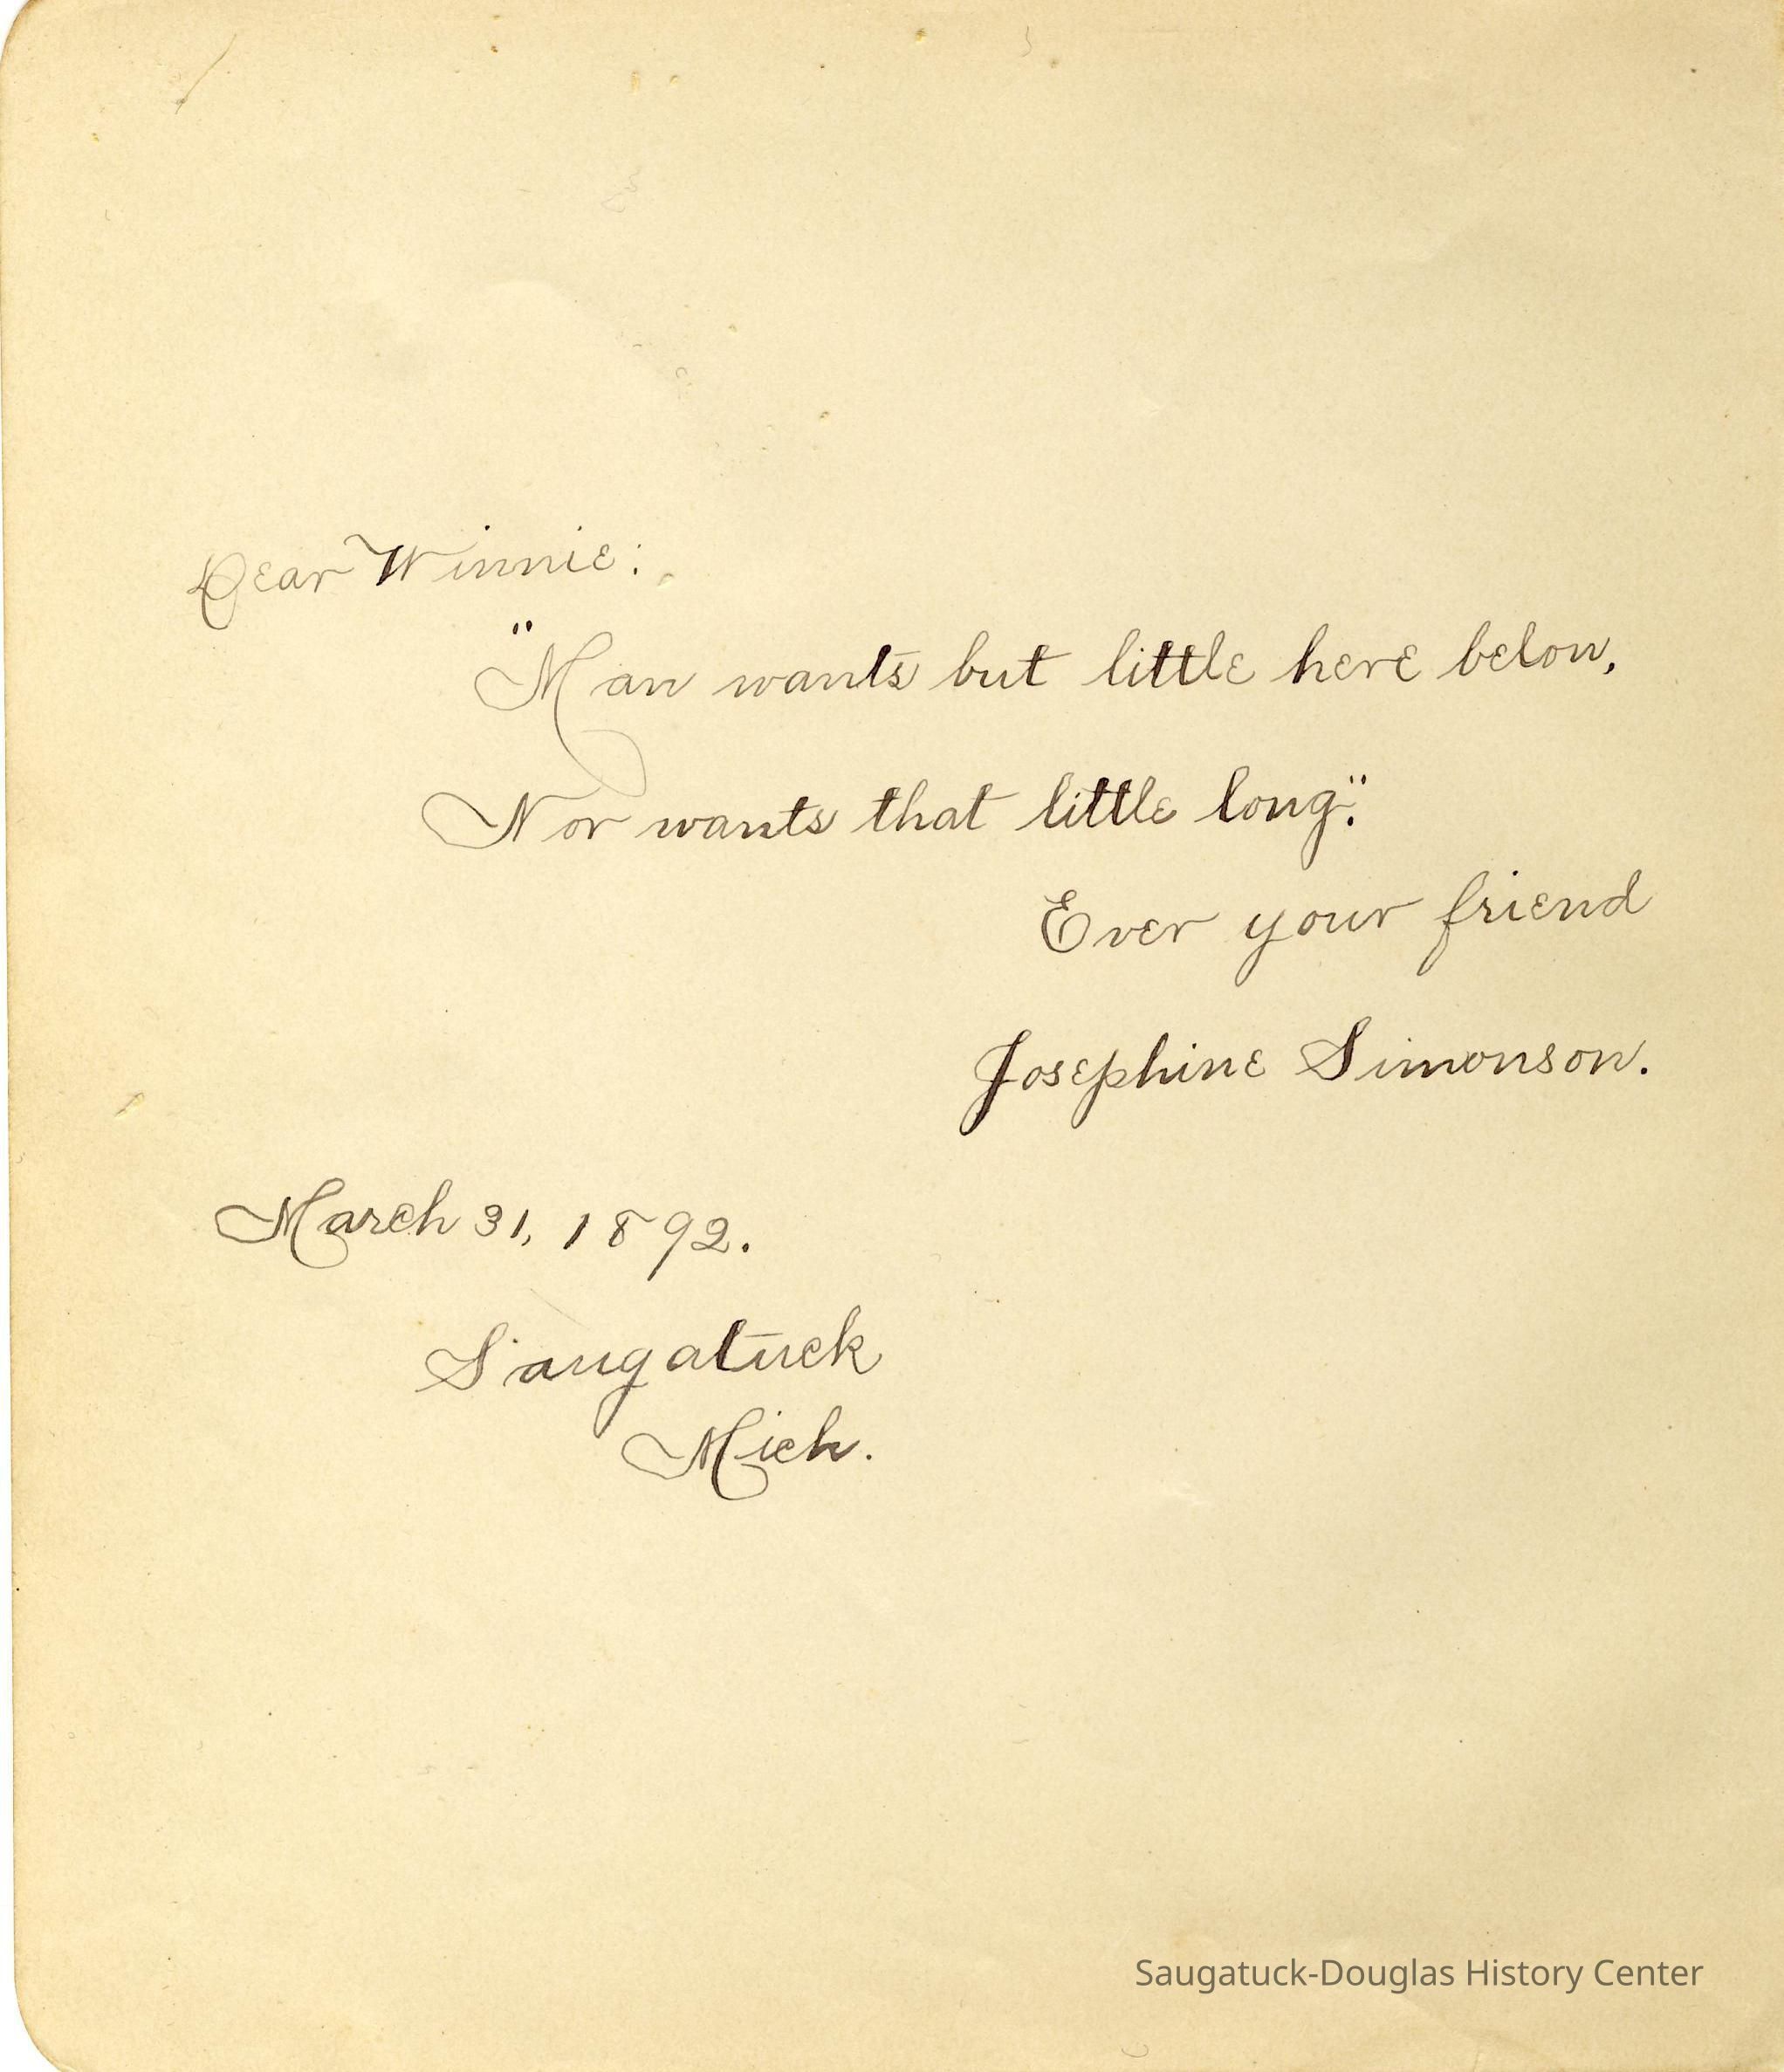 Dear Winnie:
"Man wants but little here below,
Nor wants that little long."
Ever your friend
Josephine Simonson.
March 31, 1892.
Saugatuck
Mich.
Saugatuck-Douglas History Center